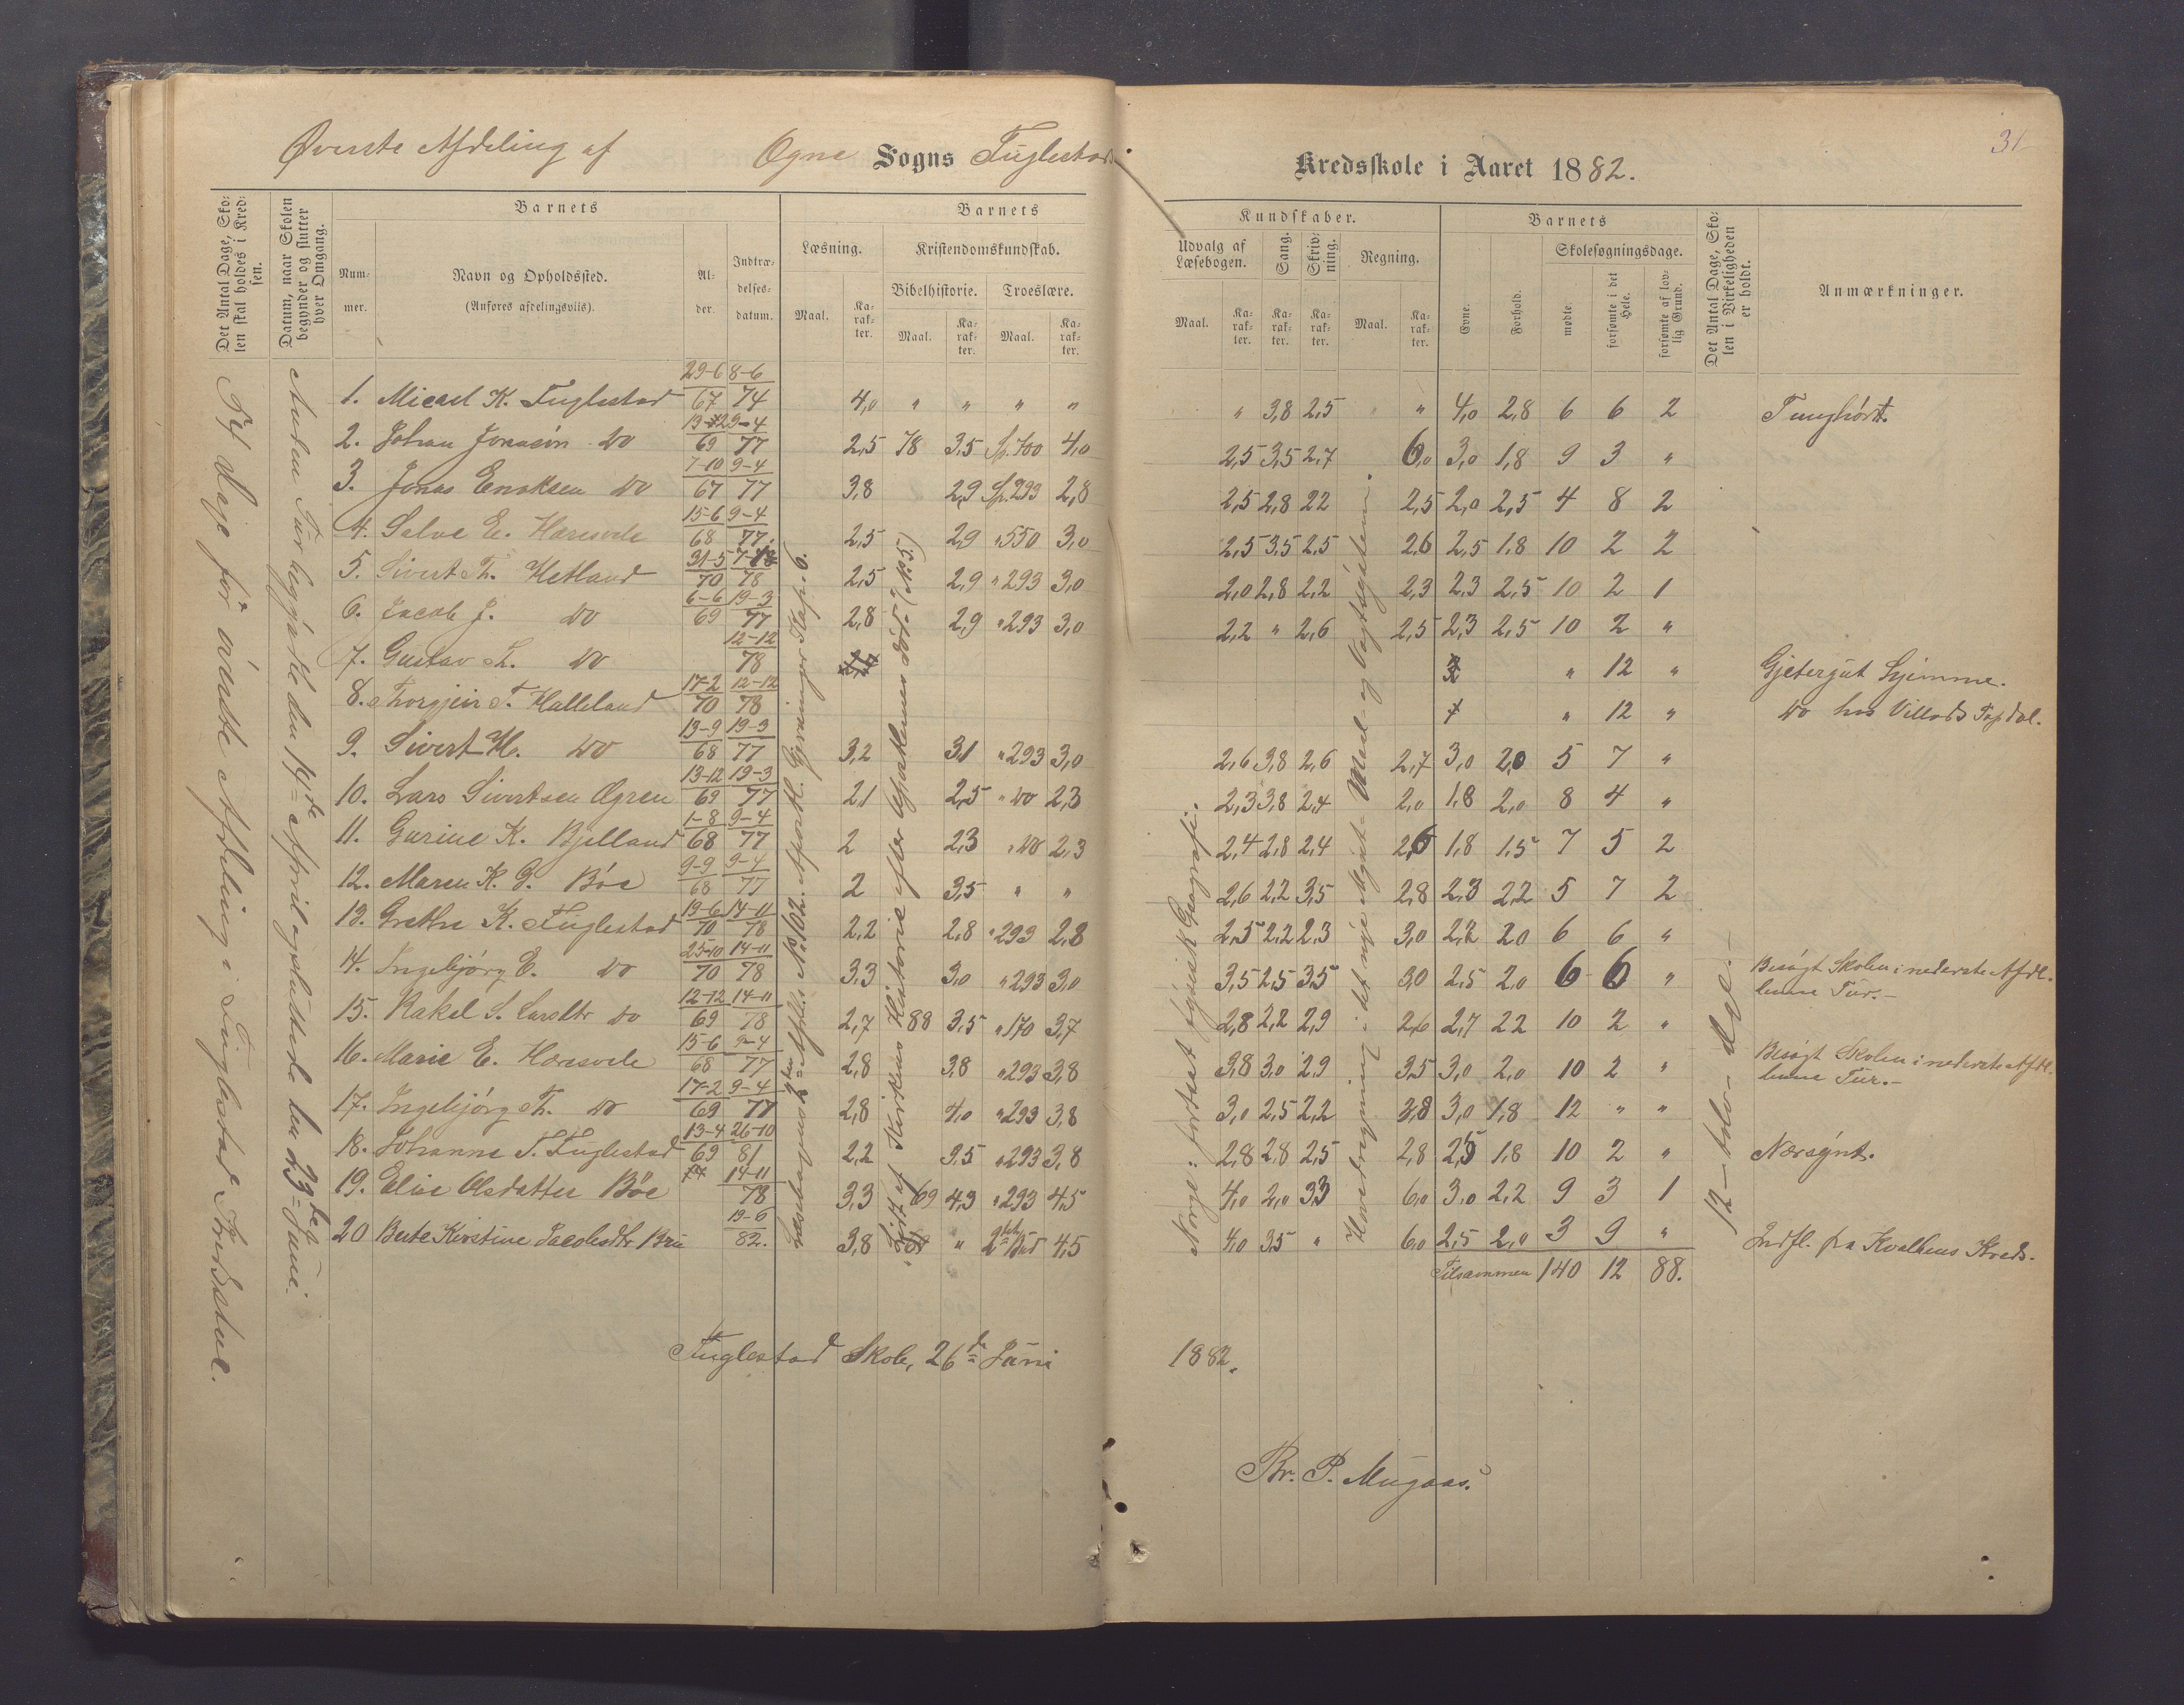 Øverste Afdeling af Ogne Sogns Fuglestad Kredsskole i Aaret 1882.
31
Det Antal Dage, Skolen skal holdes i Kredsen.
Datum, naar Skolen begynder og slutter hver Omgang.
Barnets
Nummer.
Navn og Opholdssted.
(Anføres afdelingsviis).
Alder.
Indtrædelsesdatum.
Barnets Kundskaber.
Læsning.
Maal.
Karakter.
Kristendomskundskab.
Bibelhistorie.
Maal.
Karakter.
Troeslære.
Maal.
Karakter.
Udvalg af Læsebogen.
Maal.
Karakter.
Sang.
Karakter.
Skrivning.
Karakter.
Regning.
Maal.
Karakter.
Barnets
Evne.
Forhold.
Skolesøgningsdage.
mødte.
forsømte i det Hele.
forsømte af lovlig Grund.
Det Antal Dage, Skolen i Virkeligheden er holdt.
Anmærkninger.
Dage for øverste Afdeling i Fuglestad Kredsskole.
Anden Tur begyndte den 14de April og sluttede den 23de Juni.
1. Micael K. Fuglestad 29-6 67 8-6 74 4,0 " " " " " 3,8 2,5 " 4,0 2,8 6 6 2 Tunghørt.
2. Johan Jonasen do 69 29-4 77 2,5 78 3,5 Sp. 400 4,0 2,5 3,5 2,7 6,0 3,0 1,8 9 3 "
3. Jonas Enoksen do 7-10 67 9-4 77 3,8 2,9 Sp. 293 2,8 2,5 2,8 22 2,5 2,0 2,5 4 8 2
4. Salve E. Hæresvele 15-6 68 9-4 77 2,5 2,9 " 550 3,0 2,5 3,5 2,5 2,6 2,5 1,8 10 2 2
5. Sivert Th. Hetland 31-5 70 78 2,5 2,9 " 293 3,0 2,0 2,8 2,2 2,3 2,3 2,5 10 2 1
6. Jacob J. do 6-6 69 19-3 77 2,8 2,9 " 293 3,0 2,2 " 2,6 2,5 2,3 2,5 10 2 "
7. Gustav L. do 12-12 78 " 12 " Gjetergut hjemme.
8. Thorgjeir T. Halleland 17-2 70 12-12 78 " 12 " do hos Villads
9. Sivert H. do 13-9 68 19-3 77 3,2 3,1 " 293 3,0 2,6 3,8 2,6 2,7 3,0 2,0 5 7 "
10. Lars Sivertsen Øgren 13-12 69 19-3 77 2,1 2,5 " do 2,3 2,3 3,8 2,4 2,0 1,8 2,0 8 4 "
11. Gurine K. Bjelland 1-8 68 9-4 77 2 2,3 " do 2,3 2,4 2,8 2,4 2,6 1,8 1,5 7 5 2
12. Maren K. G. Bøe 9-9 68 9-4 77 2 3,5 " " 2,6 2,2 3,5 2,8 2,3 2,2 5 7 2
13. Grethe K. Fuglestad 19-6 70 14-11 78 2,2 2,8 " 293 2,8 2,5 2,2 2,3 3,0 2,2 20 6 6 "
14. Ingebjørg E. do 25-10 70 14-11 78 3,3 3,0 " 293 3,0 3,5 2,5 3,5 3,0 2,5 2,0 6 6 " Besøgt Skolen i nederste Afdl. denne Tur.-
15. Rakel S. Larsdtr do 12-12 69 14-11 78 2,7 88 3,5 " 170 3,7 2,8 2,2 2,9 2,6 2,7 22 10 2 "
16. Marie E. Hæresvele 15-6 68 9-4 77 2,8 3,8 " 293 3,8 3,8 3,0 2,9 3,5 3,0 2,0 10 2 " Besøgt Skolen i nederste Afdl. denne Tur.-
17. Ingebjørg Th. do 17-2 69 9-4 77 2,8 4,0 " 293 3,8 3,0 2,5 2,2 3,8 3,0 1,8 12 " "
18. Johanne T. Fuglestad 13-4 69 26-10 81 2,2 3,5 " 293 3,8 2,8 2,8 2,5 2,8 2,5 1,8 10 2 " Nærsynt.
19. Elise Olsdatter Bøe 14-11 78 3,3 69 4,3 " 293 4,5 4,0 2,0 3,3 6,0 3,0 2,2 9 3 1
20 Berte Kirstine Jacobsdtr Bru 19-6 82. 3,8 " 4,5 4,0 3,5 " 6,0 2,5 2,0 3 9 " Indfl. fra Kvalbens Kreds.
Tilsammen 140 12 88.
Norge: fortsat fysisk Geografi.
12 - tolv - Dage.
Fuglestad Skole, 26de Juni 1882.
Br. P. Mugaas.